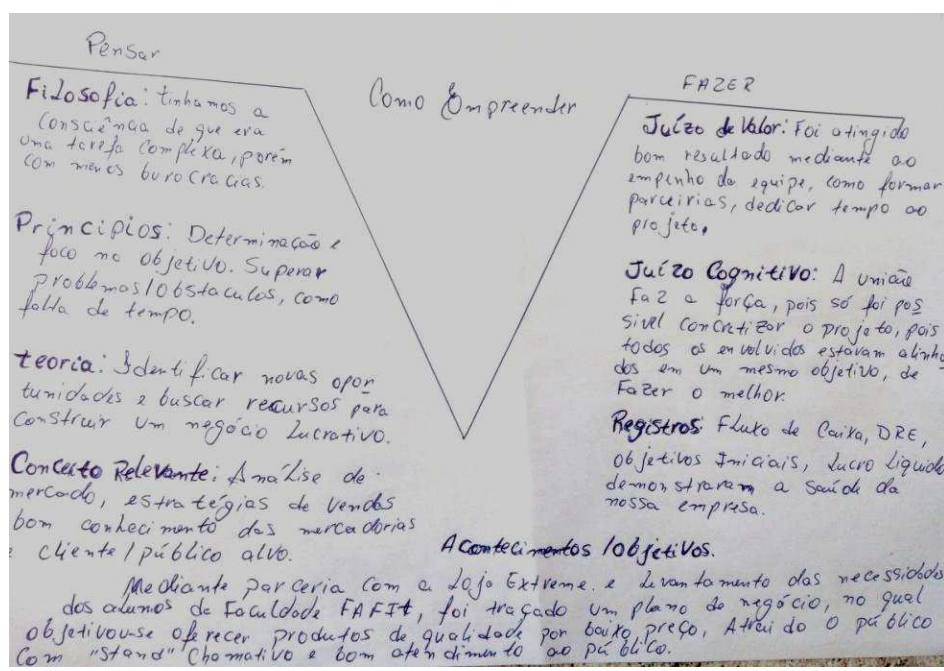 Pensar
Filosofia: tinhamos a
consciência de que era
uma tarefa complexa, porém
com menos burocracias.
Princípios: Determinação e
foco no objetivo. Superar
problemas/obstaculos, como
falta de tempo.
teoria: Identificar novas opor
tunidades e buscar recursos para
construir um negócio lucrativo.
Conceito Relevante: Análise de
mercado, estratégias de vendas
bom conhecimento das mercadorias
e cliente/público alvo.
Como Empreender
FAZER
Juízo de Valor: Foi atingido
bom resultado mediante ao
empenho da equipe, como formar
parceirias, dedicar tempo ao
projeto.
Juízo Cognitivo: A união
faz a força, pois só foi pos
sivel concretizar o projeto, pois
todos os envolvidos estavam alinha
dos em um mesmo objetivo, de
Fazer o melhor.
Registros: Fluxo de Caixa, DRE,
objetivos Iniciais, Lucro Liquido
demonstraram a saúde da
nossa empresa.
Acontecimentos/objetivos.
Mediante parceria com a Loja Extreme e levantamento das necessidades
dos alunos da Faculdade FAFIt, foi traçado um plano de negócio, no qual
objetivou-se oferecer produtos de qualidade por baixo preço, Atraido o público
com "stand" chamativo e bom atendimento ao público.